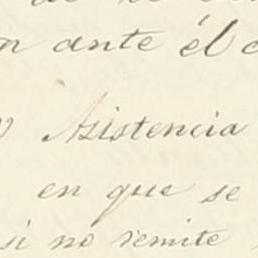 ante él
Asistencia
en que se
si no remite